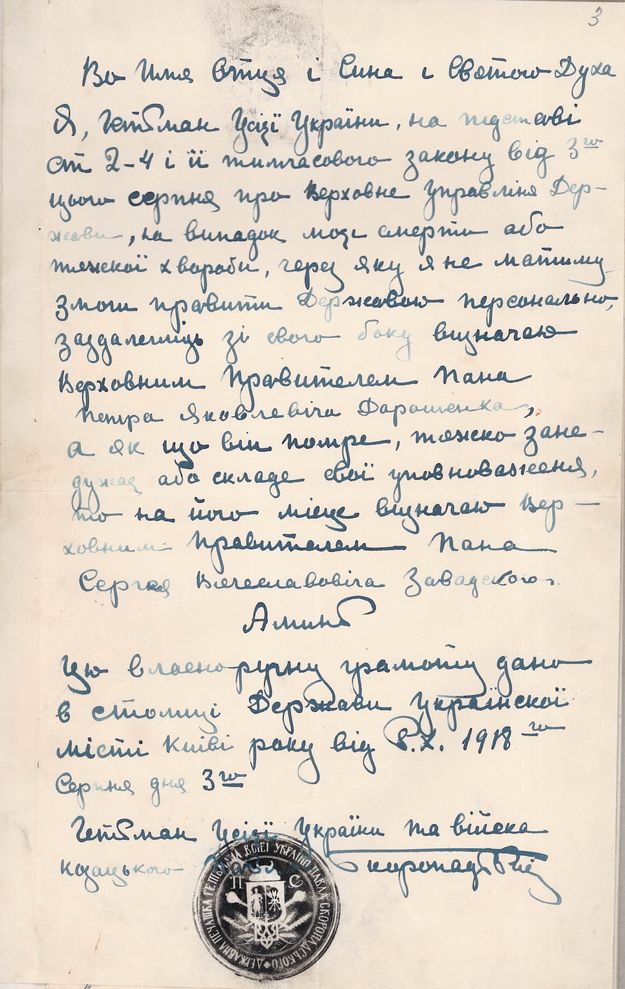 3
Во Имя Вітця і Сина і Святого Духа
Я, Гетьман Усієї України, на підставі
ст 2-4 і її тимчасового закону від 3го
цього серпня про Верховне Управліня Дер-
жави, на випадок моєї смерти або
тяжкої хвороби, через яку я не матиму
змоги правити Державою персонально,
заздалегідь зі свого боку визначаю
Верховним Правителем Пана
Петра Яковлевіча Дорошенка,
а як що він помре, тяжко зане-
дужає або складе свої уповноваженя,
то на його місце визначаю Вер-
ховним Правителем Пана
Сергея Вячеславовіча Завадского.
Аминь
Цю власноручну грамоту дано
в столиці Держави Української
місті Київі року від Р.Х. 1918го
Серпня дня 3го
Гетьман Усієї України та війска
Козацького Павло Скоропадський
ДЕРЖАВНА ПЕЧАТКА ГЕТЬМАНА ВСІЄЇ УКРАЇНИ ПАВЛА СКОРОПАДСЬКОГО
П С